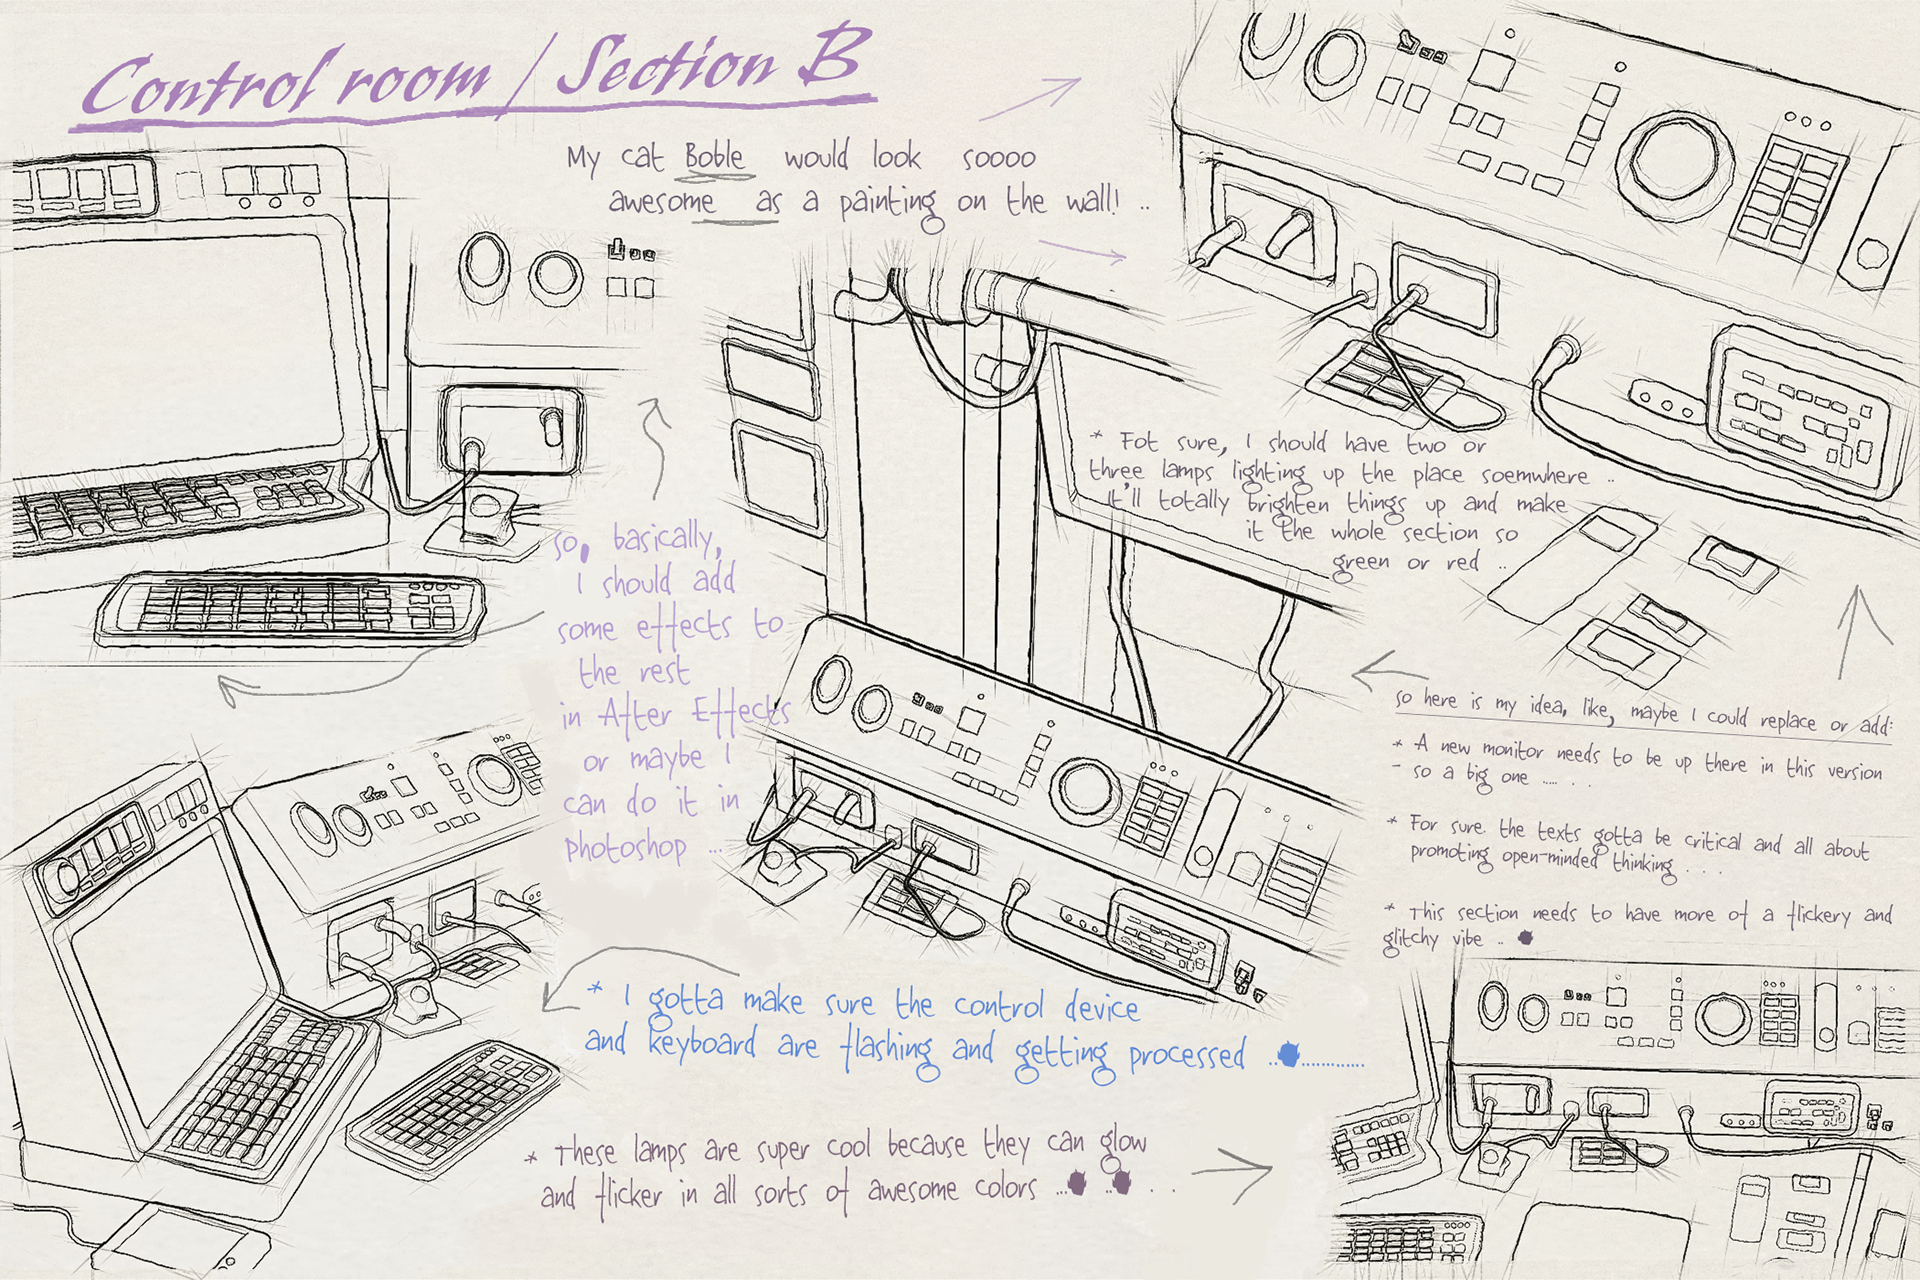 Control room / Section B
My cat Boble would look soooo
awesome as a painting on the wall! ..
* Fot sure, I should have two or
three lamps lighting up the place soemwhere ..
It'll totally brighten things up and make
it the whole section so
green or red ..
so, basically,
I should add
some effects to
the rest
in After Effects
or maybe I
can do it in
photoshop ...
so here is my idea, like, maybe I could replace or add:
* A new monitor needs to be up there in this version
- so a big one ..... . .
* For sure the texts gotta be critical and all about
promoting open-minded thinking . . .
* This section needs to have more of a flickery and
glitchy vibe ..
* I gotta make sure the control device
and keyboard are flashing and getting processed ...............
* These lamps are super cool because they can glow
and flicker in all sorts of awesome colors ... .. . .